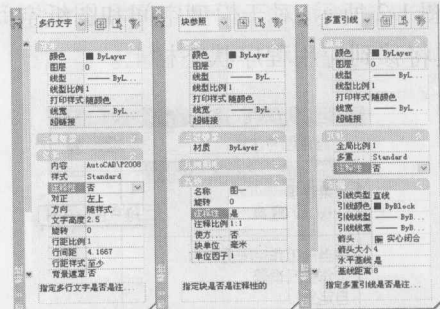 多行文字
颜色 ByLayer
图层 0
线型 ByL...
线型比例 1
打印样式 随颜色
线宽 ByL...
超链接
内容 AutoCAD\P2008
样式 Standard
注释性 否
对正 左上
方向 随样式
文字高度 2.5
旋转 0
行距比例 1
行间距 4.1667
行距样式 至少
背景遮罩 否
指定多行文字是否是注...
块参照
颜色 ByLayer
图层 0
线型 ByL...
线型比例 1
打印样式 随颜色
线宽 ByL...
超链接
材质 ByLayer
名称 图一
旋转 0
注释性 是
注释比例 1:1
使方... 否
块单位 毫米
单位因子 1
指定块是否是注释性的
多重引线
颜色 ByLayer
图层 0
线型 ByL...
线型比例 1
打印样式 随颜色
线宽 ByL...
超链接
全局比例 1
多重... Standard
注释性 否
引线类型 直线
引线颜色 ByBlock
引线线型 ByB...
引线线宽 ByB...
箭头 实心闭合
箭头大小 4
水平基线 是
基线距离 8
指定多重引线是否是注...